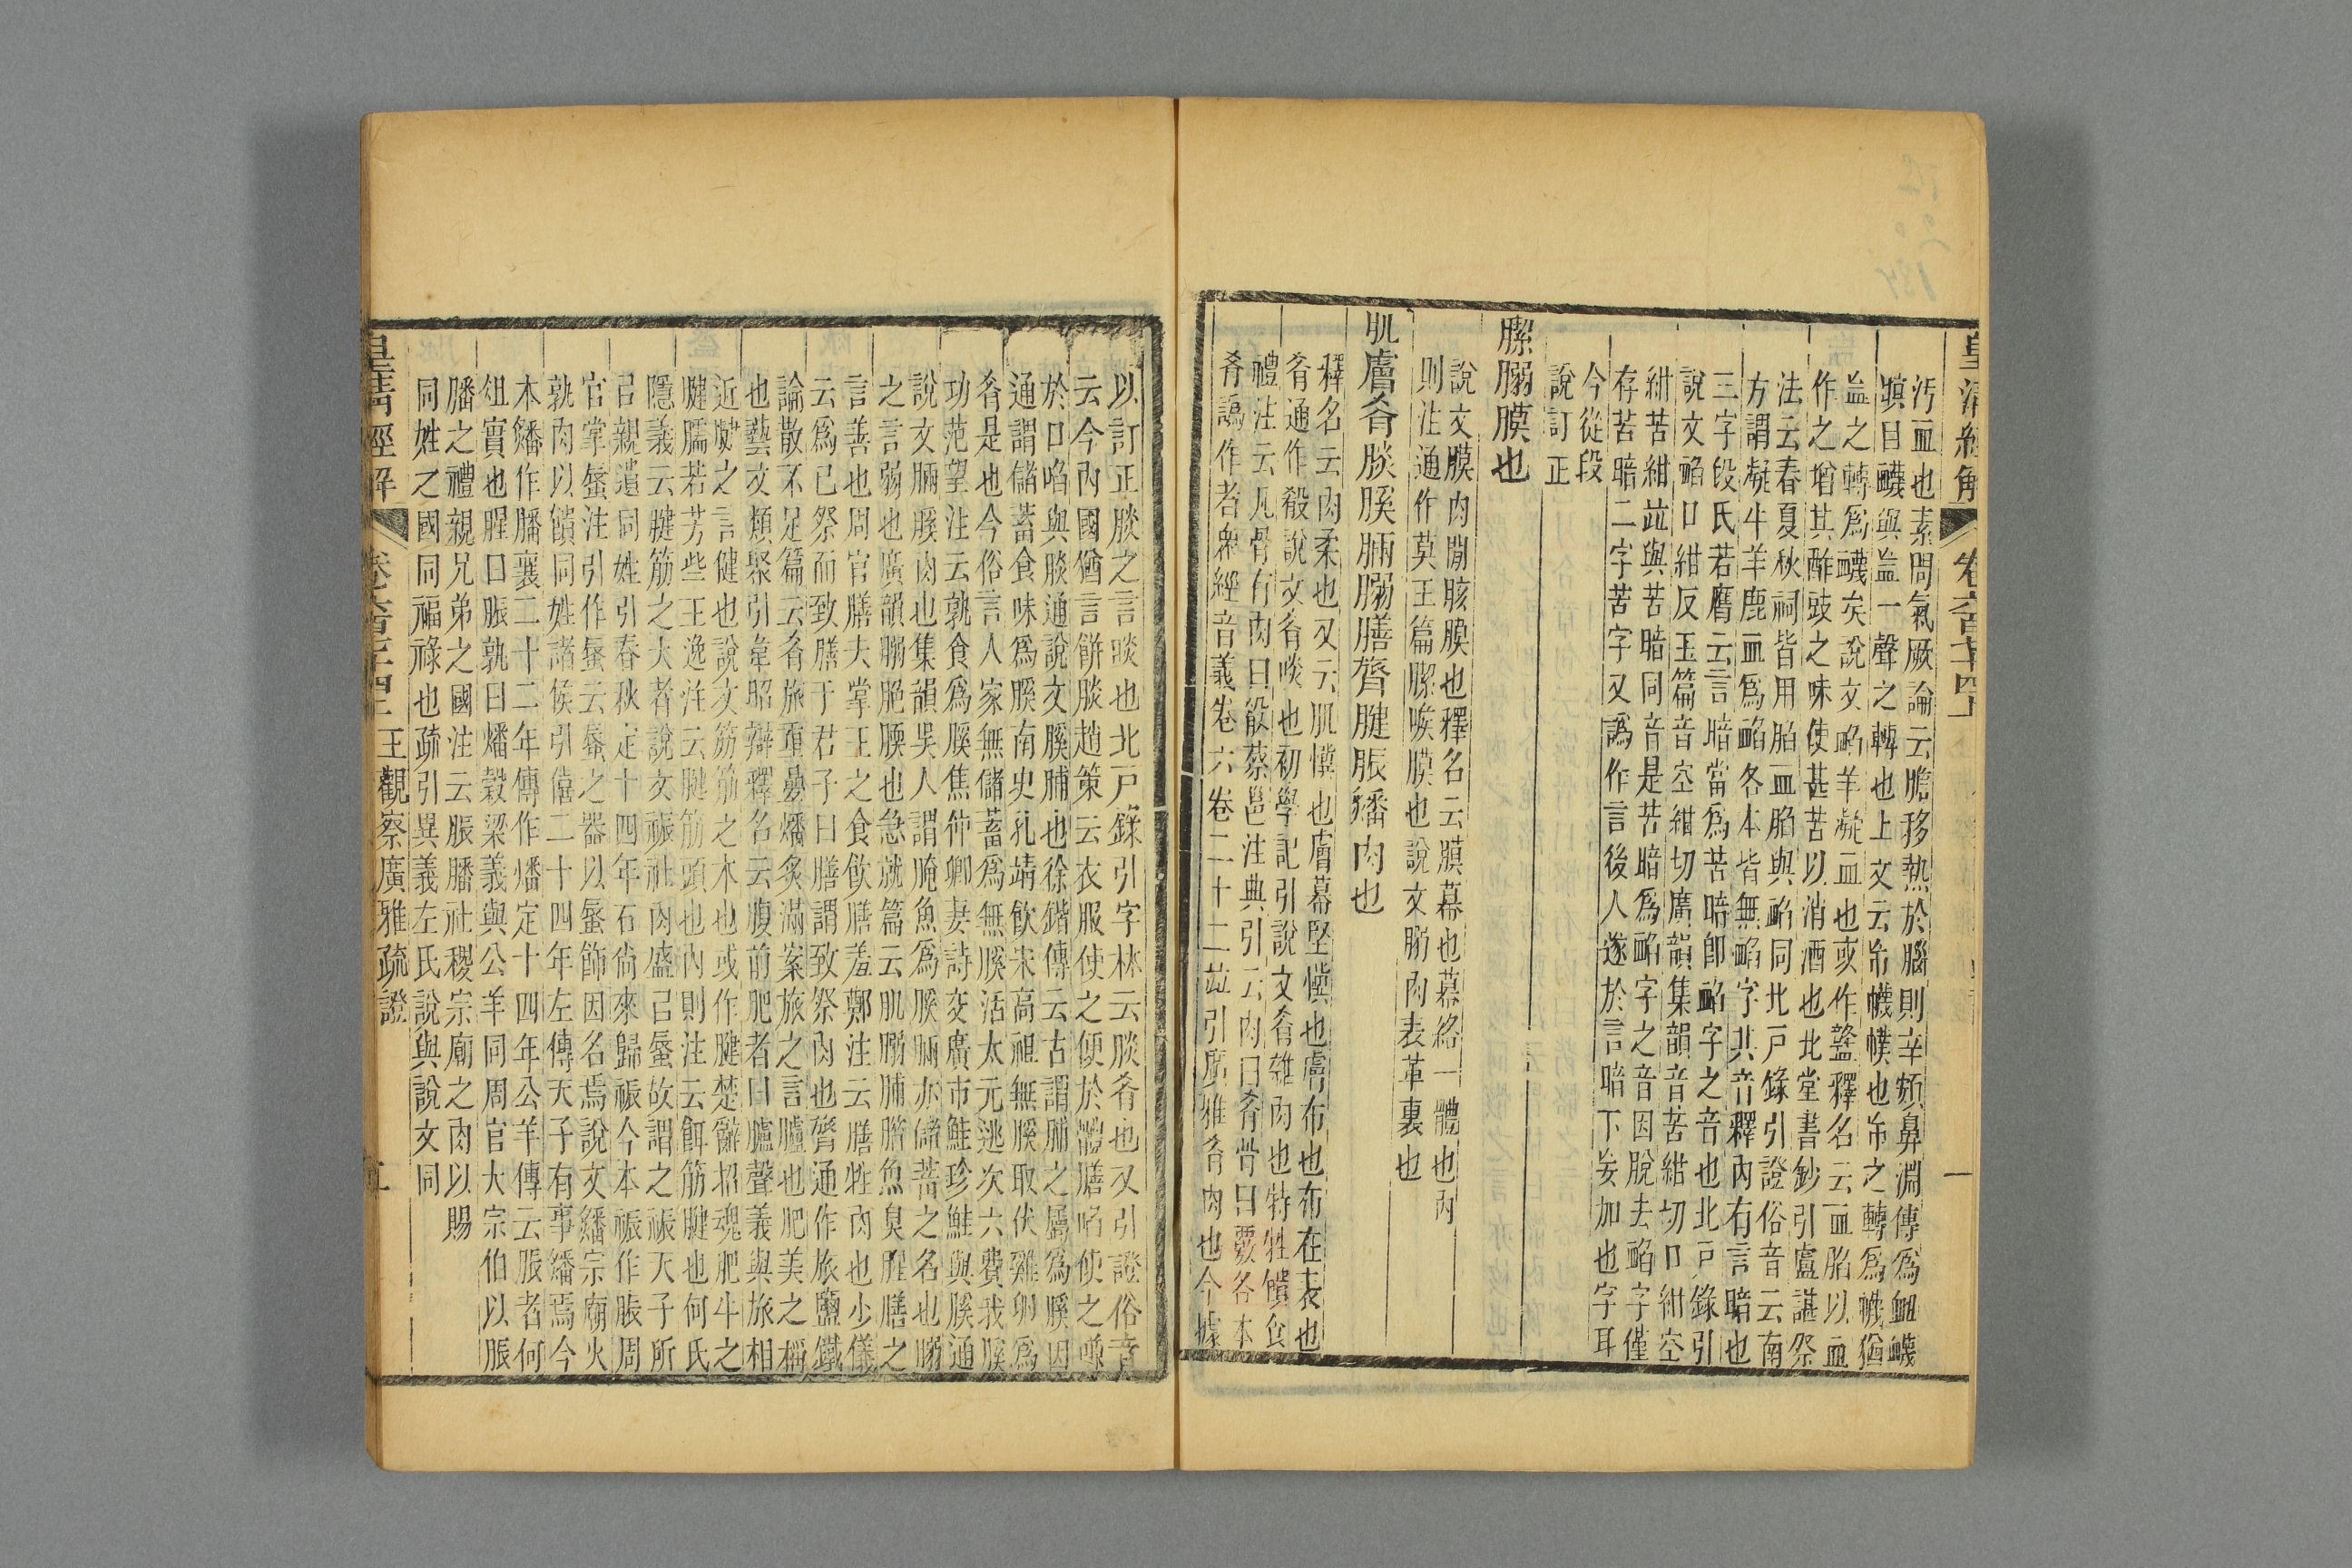 皇清經解
汚血也素問氣厥論云膽移熱於腦則辛頞鼻淵傳爲衄衊
瞋目衊與衁一聲之轉也上文云帍幭幞也帍之轉爲幭猶
衁之轉爲衊矣說文䘓羊凝血也或作䘔釋名云血䐄以血
作之增其酢豉之味使甚苦以消酒也北堂書鈔引盧諶祭
法云春夏秋祠皆用䐄血䐄與䘓同北戸錄引證俗音云南
方謂凝牛羊鹿血爲䘓各本皆無䘓字其音釋內有言暗也
三字段氏若膺云言暗當爲苦暗暗卽䘓字之音也北戸錄引
說文䘓口紺反玉篇音空紺切廣韻集韻音苦紺切口紺空
紺苦紺竝與苦暗同音是苦暗爲䘓字之音因脫去䘓字僅
存苦暗二字苦字又譌作言後人遂於言暗下妄加也字耳
今從段
說訂正
膜也
說文膜肉閒胲膜也釋名云膜幕也幕絡一體也內
則注通作莫玉篇膜也說文肉表革裏也
肌膚肴膎膳腱脤膰肉也
釋名云肉柔也又云肌懻也膚幕堅懻也膚布也布在表也
肴通作殽說文肴啖也初學記引說文肴雜肉也特牲饋食
禮注云凡骨有肉曰殽蔡邕注典引云肉曰肴骨曰覈各本
肴譌作者衆經音義卷六卷二十二竝引廣雅肴肉也今據
以訂正之言啖也北戸錄引字林云肴也又引證俗音
云今內國猶言餅趙策云衣服使之便於體膳啗使之嗛
於口啗與通說文膎脯也徐鍇傳云古謂脯之屬爲膎因
通謂儲蓄食味爲膎南史孔靖飮宋高祖無膎取伏雞卵爲
肴是也今俗言人家無儲蓄爲無膎活太元逃次六費我膎
功范望注云孰食爲膎焦仲卿妻詩交廣市鮭珍鮭與膎通
說文膎肉也集韻吳人謂腌魚爲膎亦儲蓄之名也
之言弱也廣韻脃腝也急就篇云肌脯腊魚臭腥膳之
言善也周官膳夫掌王之食飮膳羞鄭注云膳牲肉也少儀
云爲已祭而致膳于君子曰膳謂致祭肉也膂通作旅鹽鐵
論散不足篇云肴旅重疊燔炙滿案旅之言臚也肥美之稱
也藝文類聚引韋昭辯釋名云腹前肥者曰臚聲義與旅相
近腱之言健也說文筋筋之本也或作腱楚辭招魂肥牛之
腱臑若芳些王逸注云腱筋頭也內則注云餌筋腱也何氏
隱義云腱筋之大者說文祳社肉盛㠯蜃故謂之祳天子所
㠯親遺同姓引春秋定十四年石尙來歸祳今本祳作脤周
官掌蜃注引作蜃云蜃之器以蜃飾因名焉說文繙宗廟火
孰肉以饋同姓諸侯引僖二十四年左傳天子有事繙焉今
本作膰襄二十二年傳作燔定十四年公羊傳云脤者何
俎實也腥曰脤孰曰燔穀梁義與公羊同周官大宗伯以脤
膰之禮親兄弟之國注云脤膰社稷宗廟之肉以賜
同姓之國同福祿也疏引異義左氏說與說文同
王觀察廣雅疏證